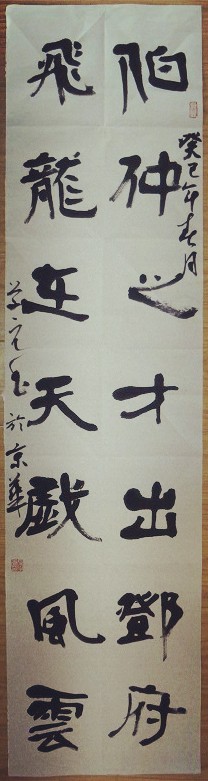 癸巳年春月
伯仲之才出鄧府
飛龍在天戯風雲
於京華